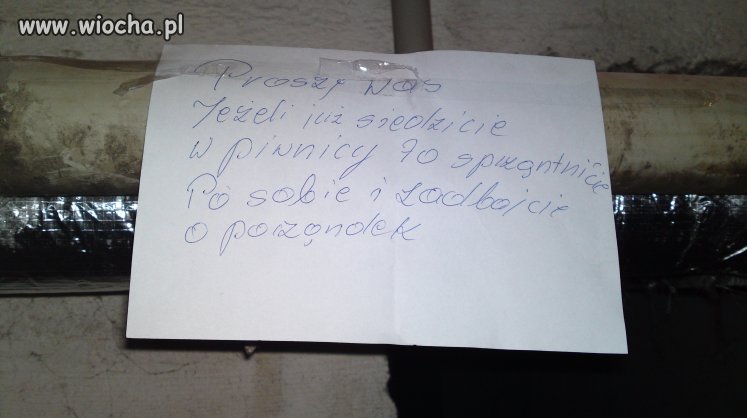 www.wiocha.pl
Proszę was
Jeżeli już siedzicie
w piwnicy to sprzątnićie
Po sobie i zadbajcie
o porządek